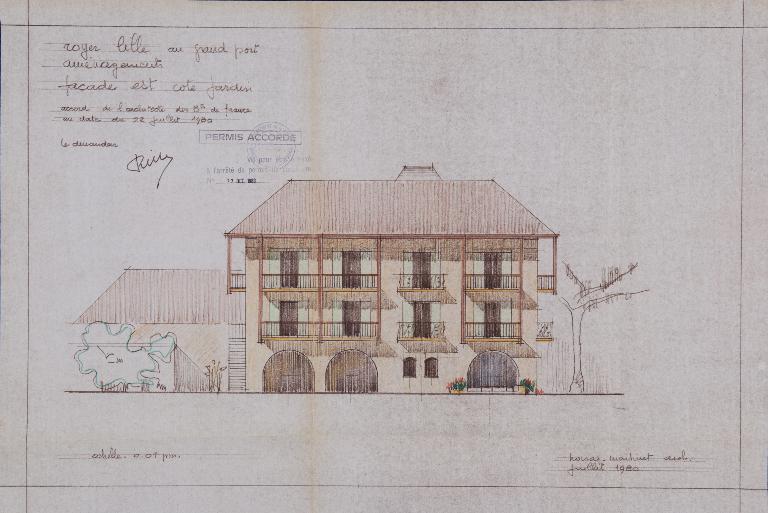 royer lille au grand port
aménagements
façade est coté jardin
accord de l'architecte des Bts de france
en date du 22 juillet 1980
le demandeur
PERMIS ACCORDÉ
Vu pour être
à l'arrêté de permis de
N°
echelle. 0.01 pm.
juillet 1980